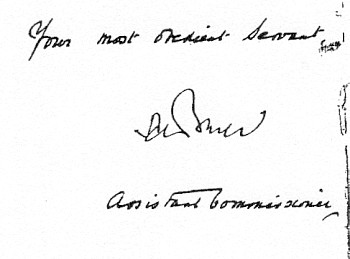 Your most obedient Servant
Assistant Commissioner